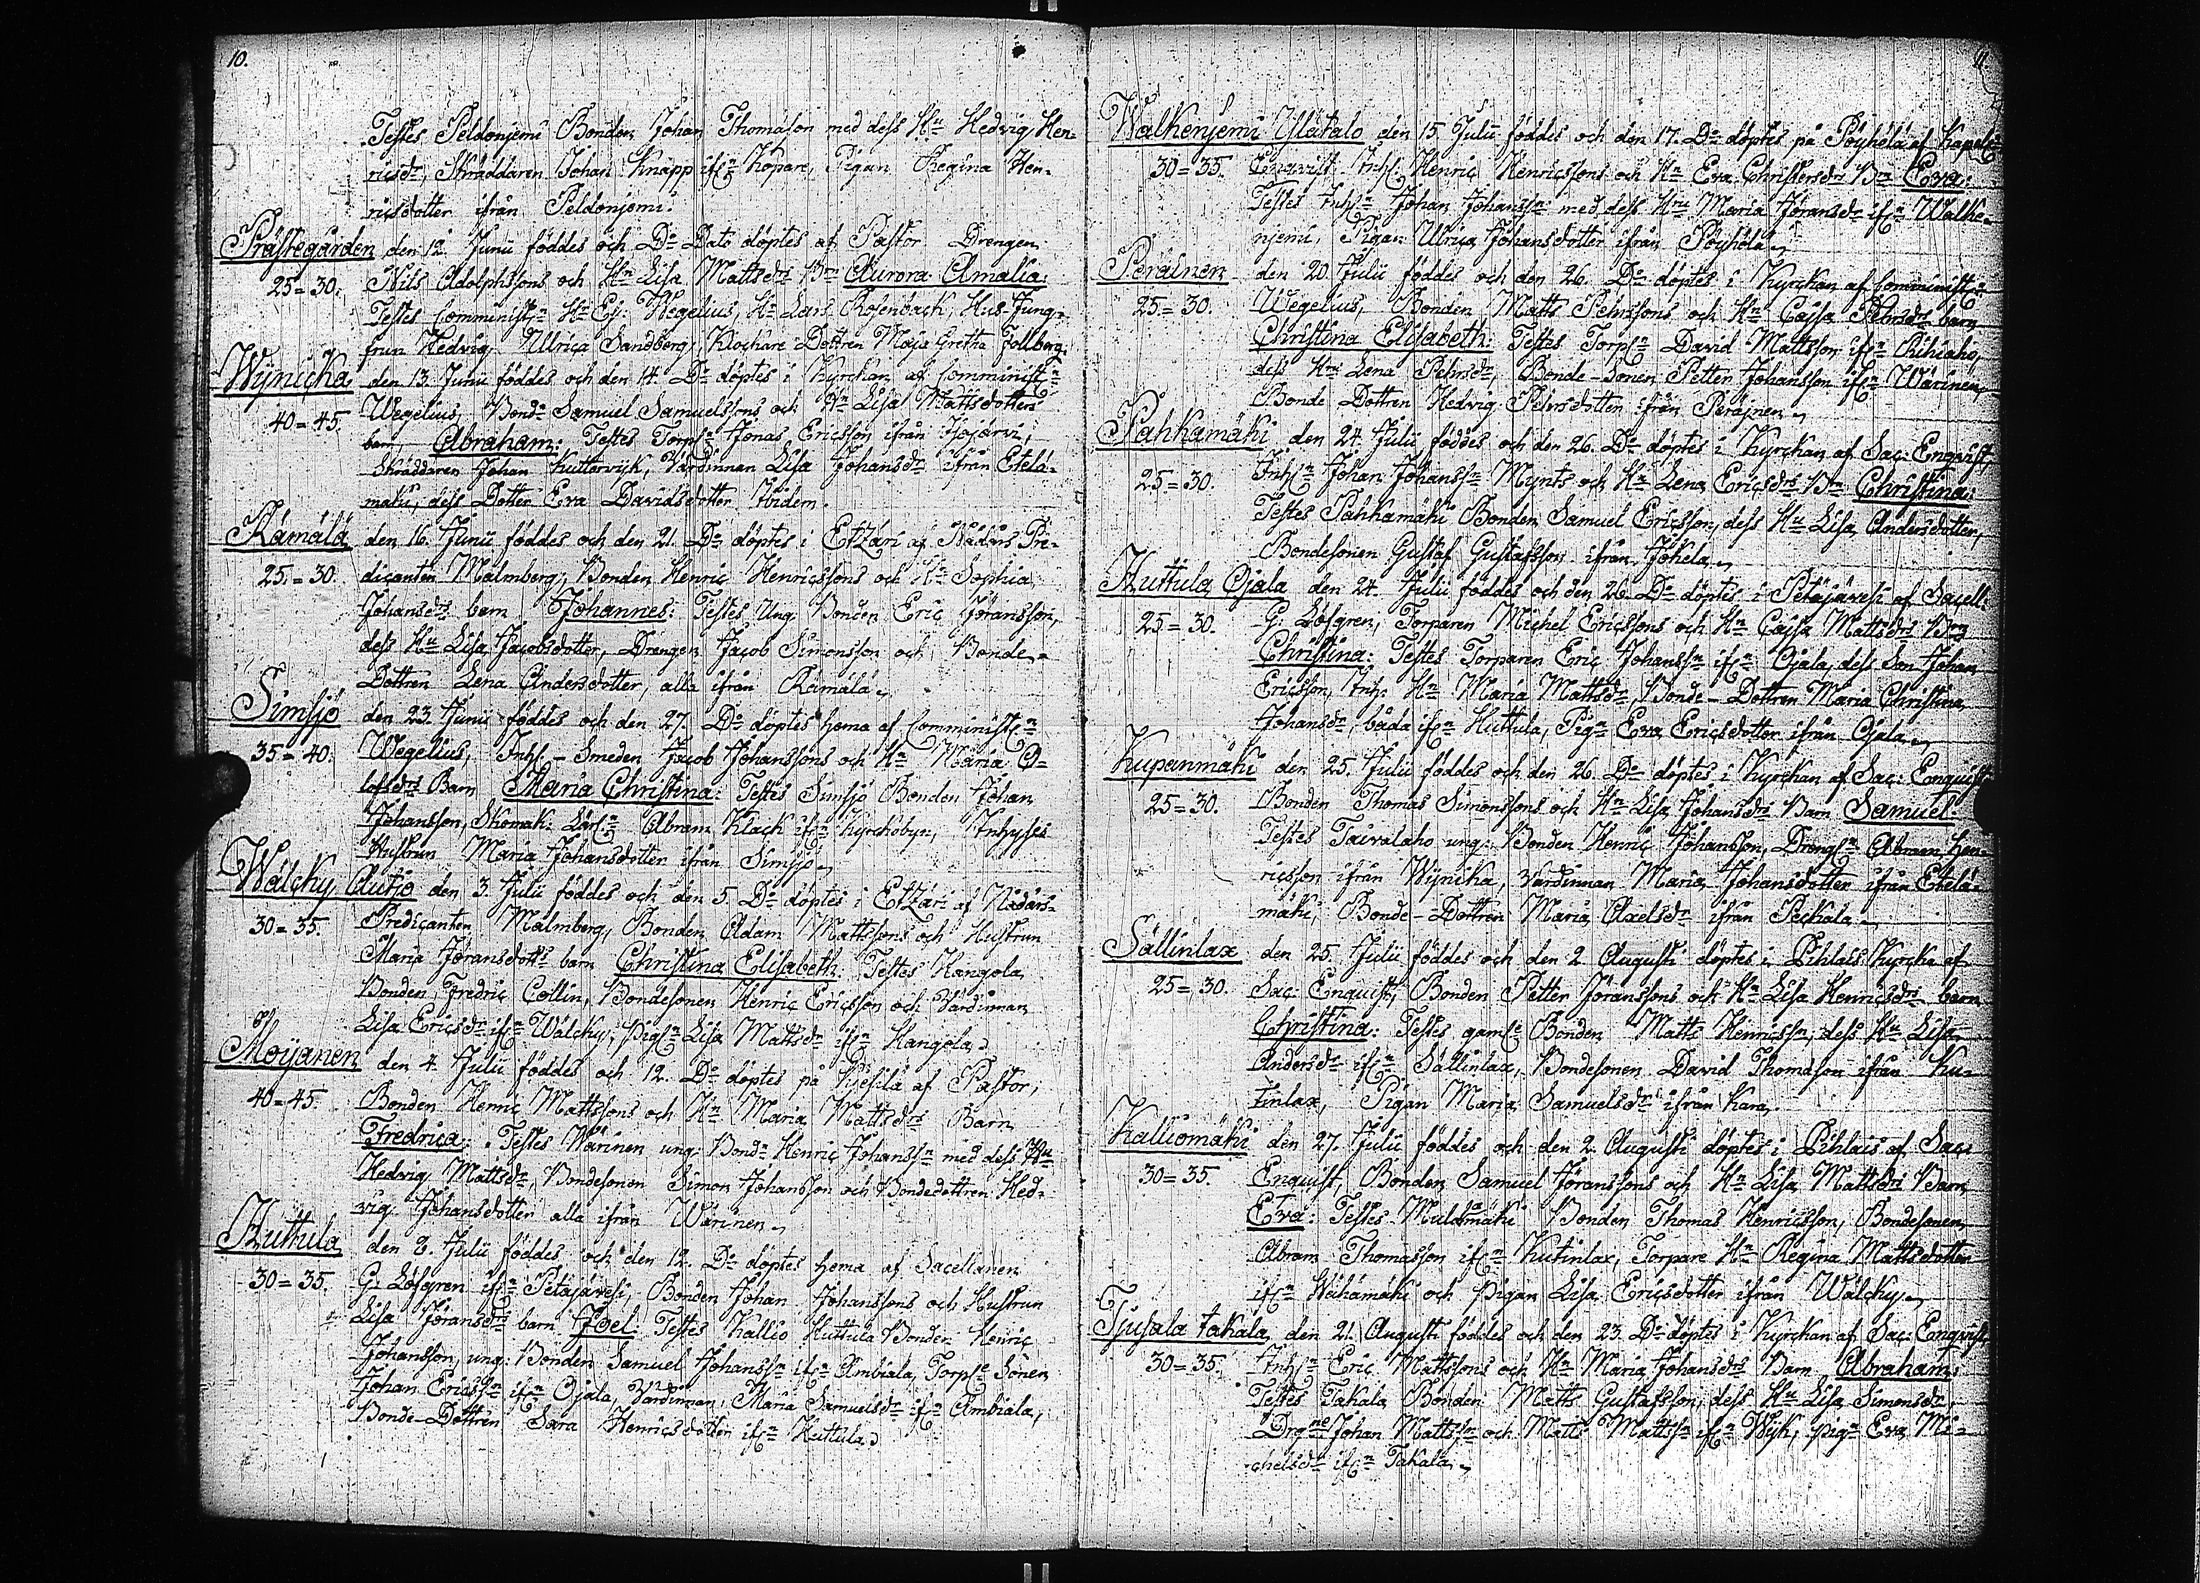 10.
Testes Peldonjemi Bonden Johan Thomason med dess Hu Hedvig Hen-
ricsdr, Skräddaren Johan Knapp ifrn Kopare, Pigan Regina Hen-
ricsdotter ifrån Peldonjemi.
Prästegården den 12. Junii föddes och Do Dato döptes af Pastor Drengen
25=30. Nils Adolphssons och Hn Lisa Mattsdrs Brn Aurora Amalia:
Testes Comministrn Hr Es: Wegelius, Hr Lars Rosenback, Hus-Jung-
frun Hedvig Ullrica Sandberg, Klockare Dottren Maja Gretha Follberg.
Wÿnicka den 13. Junii föddes och den 14. Do döptes i Kyrckan af Comministrn
40=45. Wegelius, Bondn Samuel Samuelssons och Hn Lisa Mattsdotters
barn Abraham: Testes Torpn Jonas Ericsson ifrån
Skräddaren Johan Kuttervijk, Värdinnan Lisa Johansdr ifrån Etelä-
mäki, dess Dotter Eva Davidsdotter Ibidem.
Rämälä den 16. Junii föddes och den 21. Do döptes i Etzäri af Nådårs Pre-
25=30. dicanten Malmberg, Bonden Henric Henricssons och Hn Sophia
Johansdrs barn Johannes: Testes Ung Bonden Eric Jöransson,
dess Hu Lisa Jacobsdotter, Drengen Jacob Simonsson och Bonde-
Dottren Lena Andersdotter, alla ifrån Rämälä.
Simsjö den 23. Junii föddes och den 27. Do döptes hema af Comministrn
35=40. Wegelius, Inhs.-Smeden Jacob Johanssons och Hn Maria O-
lofsdrs Barn Maria Christina: Testes Simsjö Bonden Johan
Johansson, Skomak: Abram Klack ifrn Kyrckobyn, Inhysses
Hustrun Maria Johansdotter ifrån Simsjö.
Wälcky Autjo den 3. Julii föddes och den 5. Do döptes i Etzäri af Nådårs-
30=35. Predicanten Malmberg, Bonden Adam Mattssons och Hustrun
Maria Jöransdotts barn Christina Elisabeth: Testes Hangola
Bonden Fredric Collin, Bondesonen Henric Ericsson och Värdinnan
Lisa Ericsdr ifrn Wälcky, Pign Lisa Mattsdr ifrn Hangola.
Moijanen den 4. Julii föddes och 12. Do döptes på Kiesilä af Pastor,
40=45. Bonden Henric Mattssons och Hn Maria Mattsdrs Barn
Fredrica: Testes Wärinen ung: Bondn Henric Johanssn med dess Hu
Hedvig Mattsdr, Bondesonen Simon Johansson och Bondedottren Hed-
vig Johansdotter alla ifrån Wärinen.
Huttula den 8. Julii föddes och den 12. Do döptes hema af Sacellanen
30=35. G: Löfgren ifrn Petäjävesi, Bonden Johan Johanssons och Hustrun
Lisa Jöransdrs barn Joel: Testes Kallio Huttula Bonden Henric
Johansson, ung: Bonden Samuel Johanssn ifrn Ambiala, Torpe Sonen
Johan Ericssn ifrn Ojala, Värdinnan Maria Samuelsdr ifrn Ambiala,
Bonde-Dottren Sara Henricsdotter ifrn Huttula.
11
Walkenjemi Ylätalo den 15. Julii föddes och den 17. Do döptes på Pöyhölä af Kapel:
30=35. Enqvist Inhs: Henric Henricssons och Hn Eva Christersdrs Brn Eva:
Testes Inhsn Johan Johanssn med dess Hru Maria Jöransdr ifrn Walke-
njemi, Pigan Ulrica Johansdotter ifrån Pöyhölä.
Peräinen den 20. Julii föddes och den 26. Do döptes i Kyrckan af Comministrn
25=30. Wegelius, Bonden Matts Pehrssons och Hn Cajsa Pehrsdrs barn
Christina Elisabeth: Testes Torpn David Mattsson ifrn Rihiaho,
dess Hru Lena Pehrsdr, Bonde-Sonen Petter Johansson ifrn Wärinen,
Bonde Dottren Hedvig Pehrsdotter ifrån Peräjnen.
Pahkamäki den 24. Julii föddes och den 26. Do döptes i Kyrckan af Sac: Enqvist,
25=30. Inhsn Johan Johanssn Mynts och Hn Lena Ericsdrs Brn Christina:
Testes Pahkamäki Bonden Samuel Ericsson, dess Hu Lisa Andersdotter,
Bondesonen Gustaf Gustafsson ifrån Jokela.
Huttula Ojala den 24. Julii föddes och den 26. Do döptes i Petäjävesi af Sacell:
25=30. G: Löfgren, Torparen Michel Ericssons och Hn Cajsa Mattsdrs Brn
Christina: Testes Torparen Eric Johanssn ifrn Ojala, dess Son Johan
Ericsson, Inh: Hn Maria Mattsdr, Bonde-Dottren Maria Christina
Johansdr, båda ifrn Huttula, Pign Eva Ericsdotter ifrån Ojala.
Kupanmäki den 25. Julii föddes och den 26. Do döptes i Kyrckan af Sac: Enquist
25=30. Bonden Thomas Simonssons och Hn Lisa Johansdrs Barn Samuel:
Testes Taivalaho ung: Bonden Henric Johansson, Drengn Abram Hen-
ricsson ifrån Wÿnicka, Värdinnan Maria Johansdotter ifrån Etelä-
mäki, Bonde-Dottren Maria Axelsdr ifrån Peckala.
Sällinlax den 25. Julii föddes och den 2 Augusti döptes i Pihlais Kyrcka af
25=30. Sac: Enquist, Bonden Petter Jöranssons och Hn Lisa Henricsdrs barn
Christina: Testes gamle Bonden Matts Henricssn, dess Hu Lisa
Andersdr ifrn Sällinlax, Bondesonen David Thomasson ifrån Ku-
tinlax, Pigan Maria Samuelsdr ifrån Kara.
Kalliomäki den 27. Julii föddes och den 2. Augusti döptes i Pihlais af Sac:
30=35. Enquist, Bonden Samuel Jöranssons och Hn Lisa Mattsdrs Barn
Eva: Testes Muldamäki Bonden Thomas Henricsson, Bondesonen
Abram Thomasson ifrn Kutinlax, Torpare Hn Regina Mattsdotter
ifrn Weihämäki och Pigan Lisa Ericsdotter ifrån Wälcky.
Tjusala Takala den 21. Augusti föddes och den 23. Do döptes i Kyrckan af Sac: Enqvist
30=35. Inhsn Eric Mattssons och Hn Maria Johansdrs Barn Abraham:
Testes Takala Bonden Matts Gustafsson, dess Hu Lisa Simonsdr,
Drgne Johan Mattssn och Matts Mattssn ifrn Wijk, Pign Eva Mi-
chelsdr ifrn Takala.